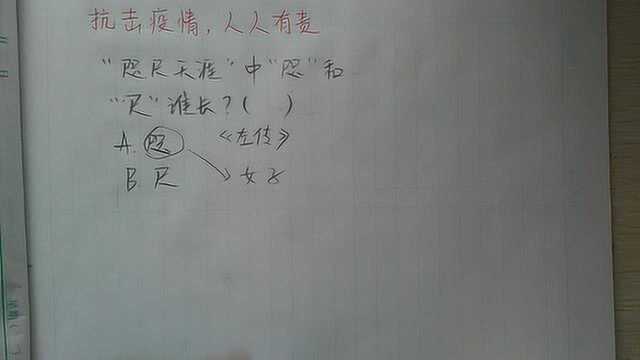 抗击疫情，人人有责
“咫尺天涯”中“咫”和
“尺”谁长？（ ）
A. 咫 《左传》
B 尺 女子